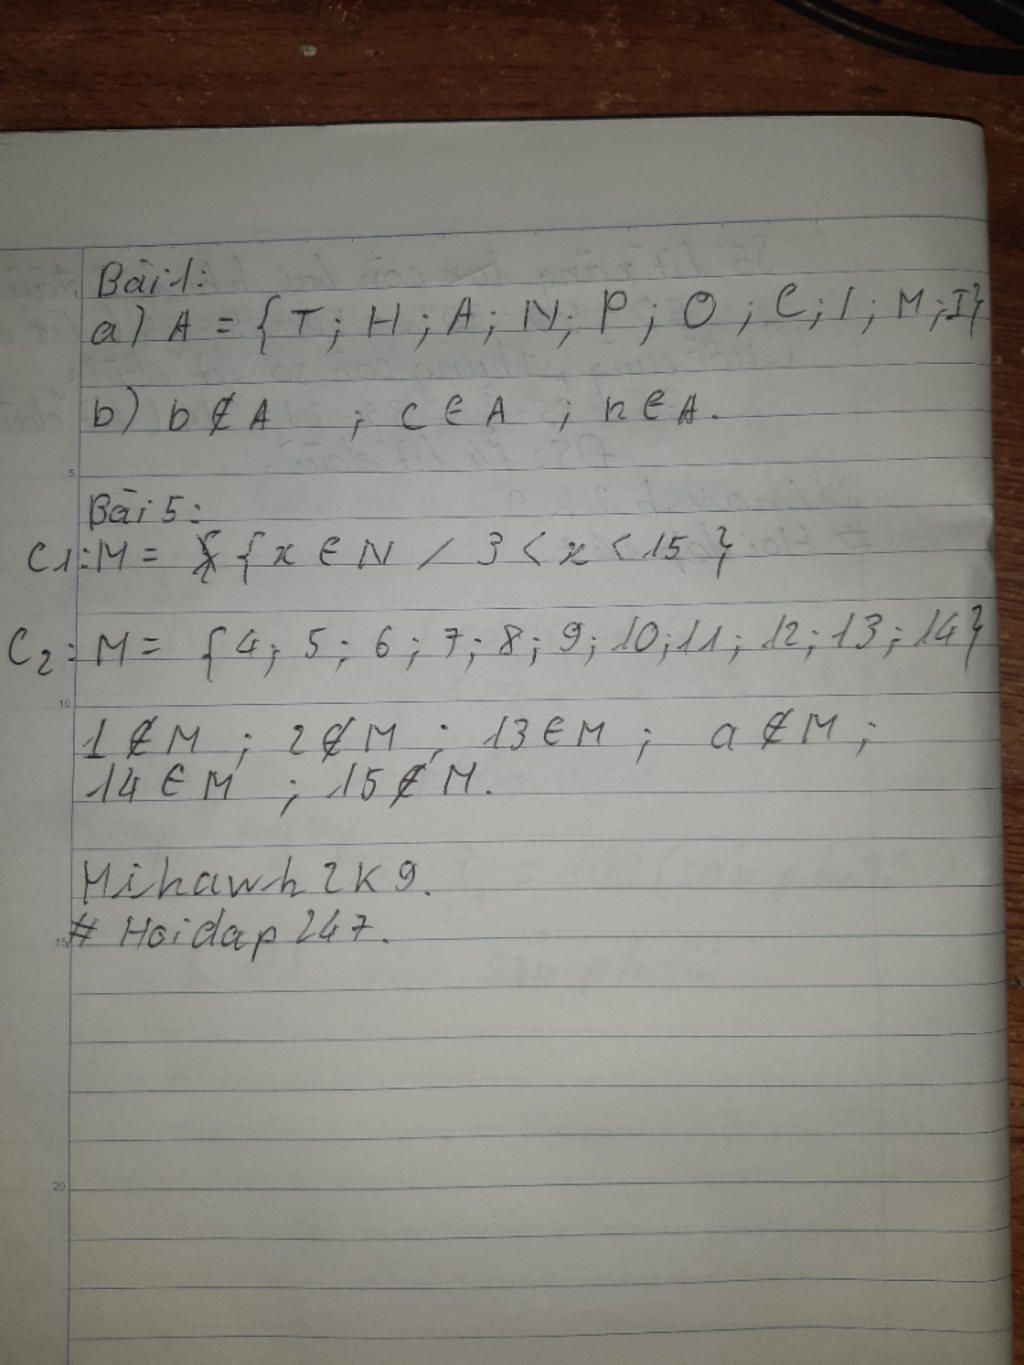 Bài 1:
a) A = { T ; H ; A ; N ; P ; O ; C ; I ; M ; I }
b) b ∉ A ; c ∈ A ; h ∈ A.
5
Bài 5:
C1: M = { x ∈ N / 3 < x < 15 }
C2: M = { 4 ; 5 ; 6 ; 7 ; 8 ; 9 ; 10 ; 11 ; 12 ; 13 ; 14 }
10
1 ∉ M ; 2 ∉ M ; 13 ∈ M ; a ∉ M ;
14 ∈ M ; 15 ∉ M.
Mihawh 2K9.
15
# Hoidap 247.
20